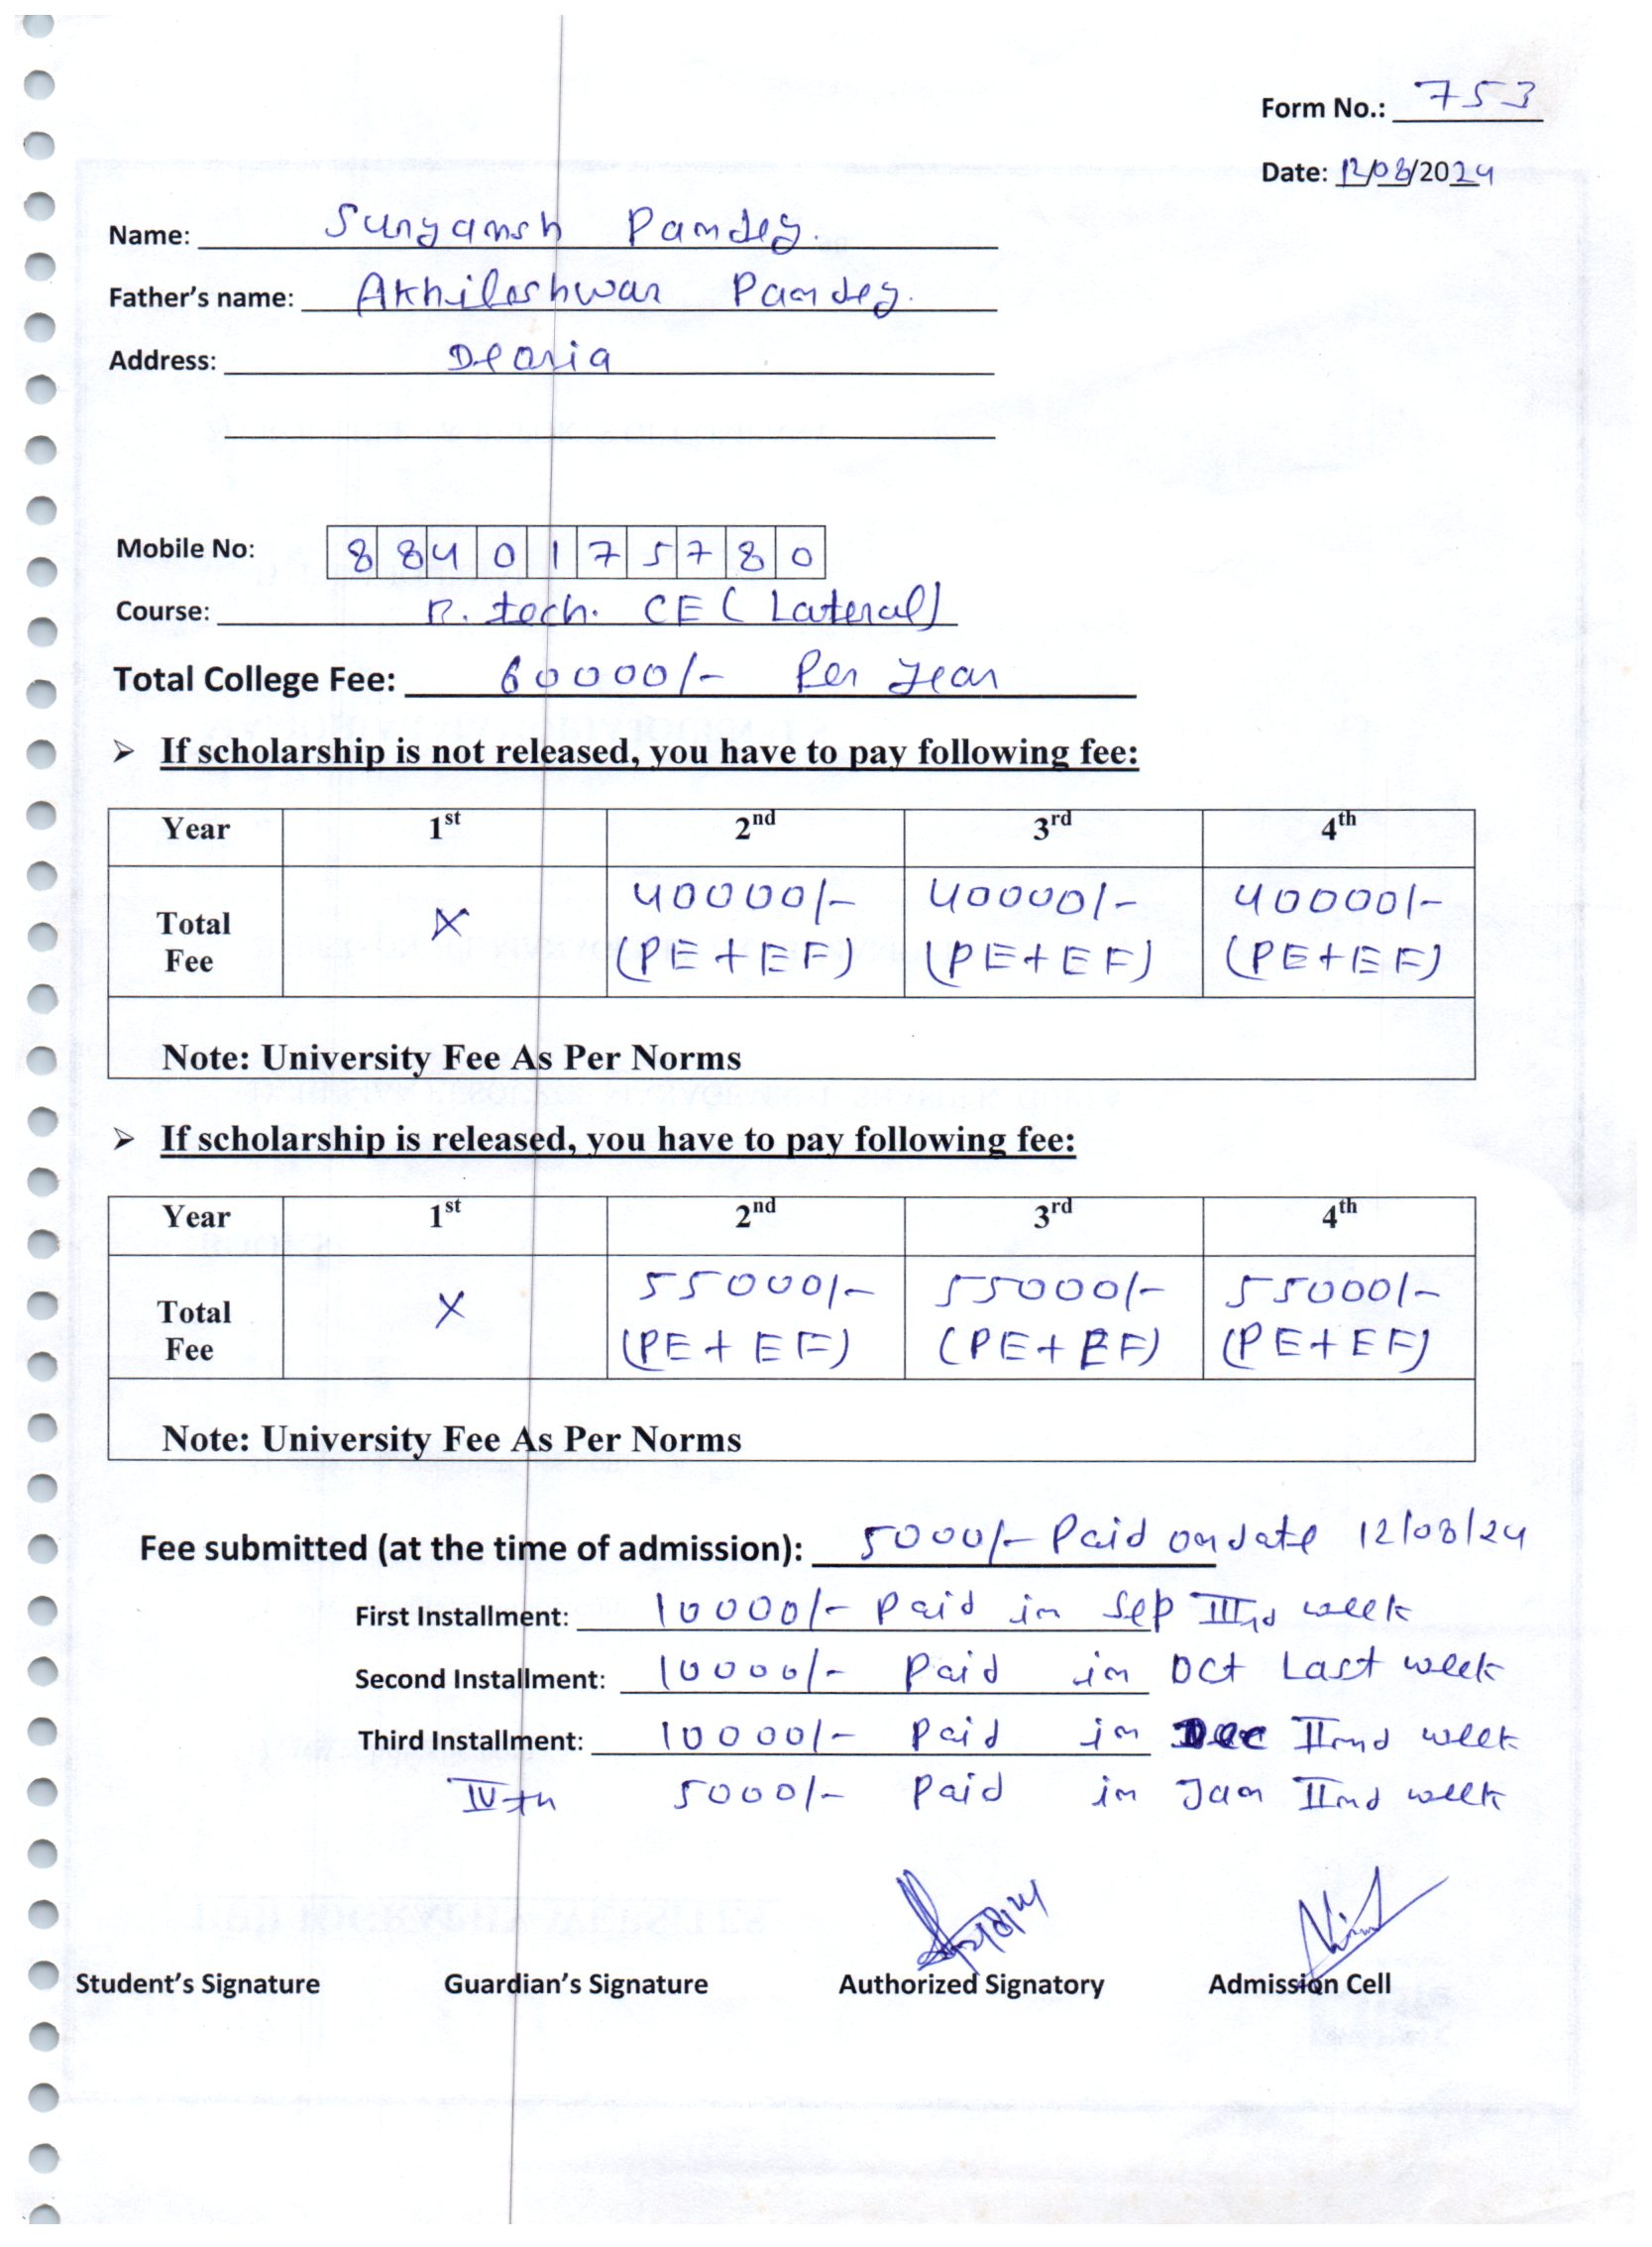 Form No.: 753
Date: 12/08/2024
Name: Suryansh Pandey.
Father's name: Akhileshwar Pandey.
Address: Deoria
Mobile No: 8840175780
Course: B. tech. CE (Lateral)
Total College Fee: 60000/- Per Year
➢ If scholarship is not released, you have to pay following fee:
Year 1st 2nd 3rd 4th
Total Fee X 40000/- (PE+EF) 40000/- (PE+EF) 40000/- (PE+EF)
Note: University Fee As Per Norms
➢ If scholarship is released, you have to pay following fee:
Year 1st 2nd 3rd 4th
Total Fee X 55000/- (PE+EF) 55000/- (PE+EF) 55000/- (PE+EF)
Note: University Fee As Per Norms
Fee submitted (at the time of admission): 5000/- Paid on date 12/08/24
First Installment: 10000/- Paid in Sep IIInd week
Second Installment: 10000/- Paid in Oct Last week
Third Installment: 10000/- Paid in Dec IInd week
IVth 5000/- Paid in Jan IInd week
Student's Signature Guardian's Signature Authorized Signatory Admission Cell